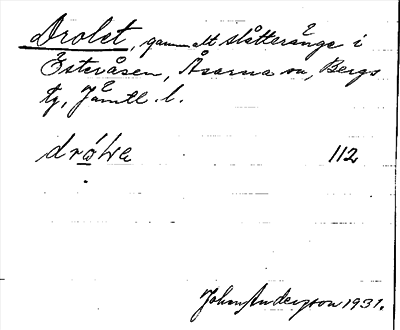 Drolet, gammalt slåtterånge i
Estvåsen, Åsarna sn, Bergs
tg, Jämtl. l.
dróLa 112
John Anderzon 1931.